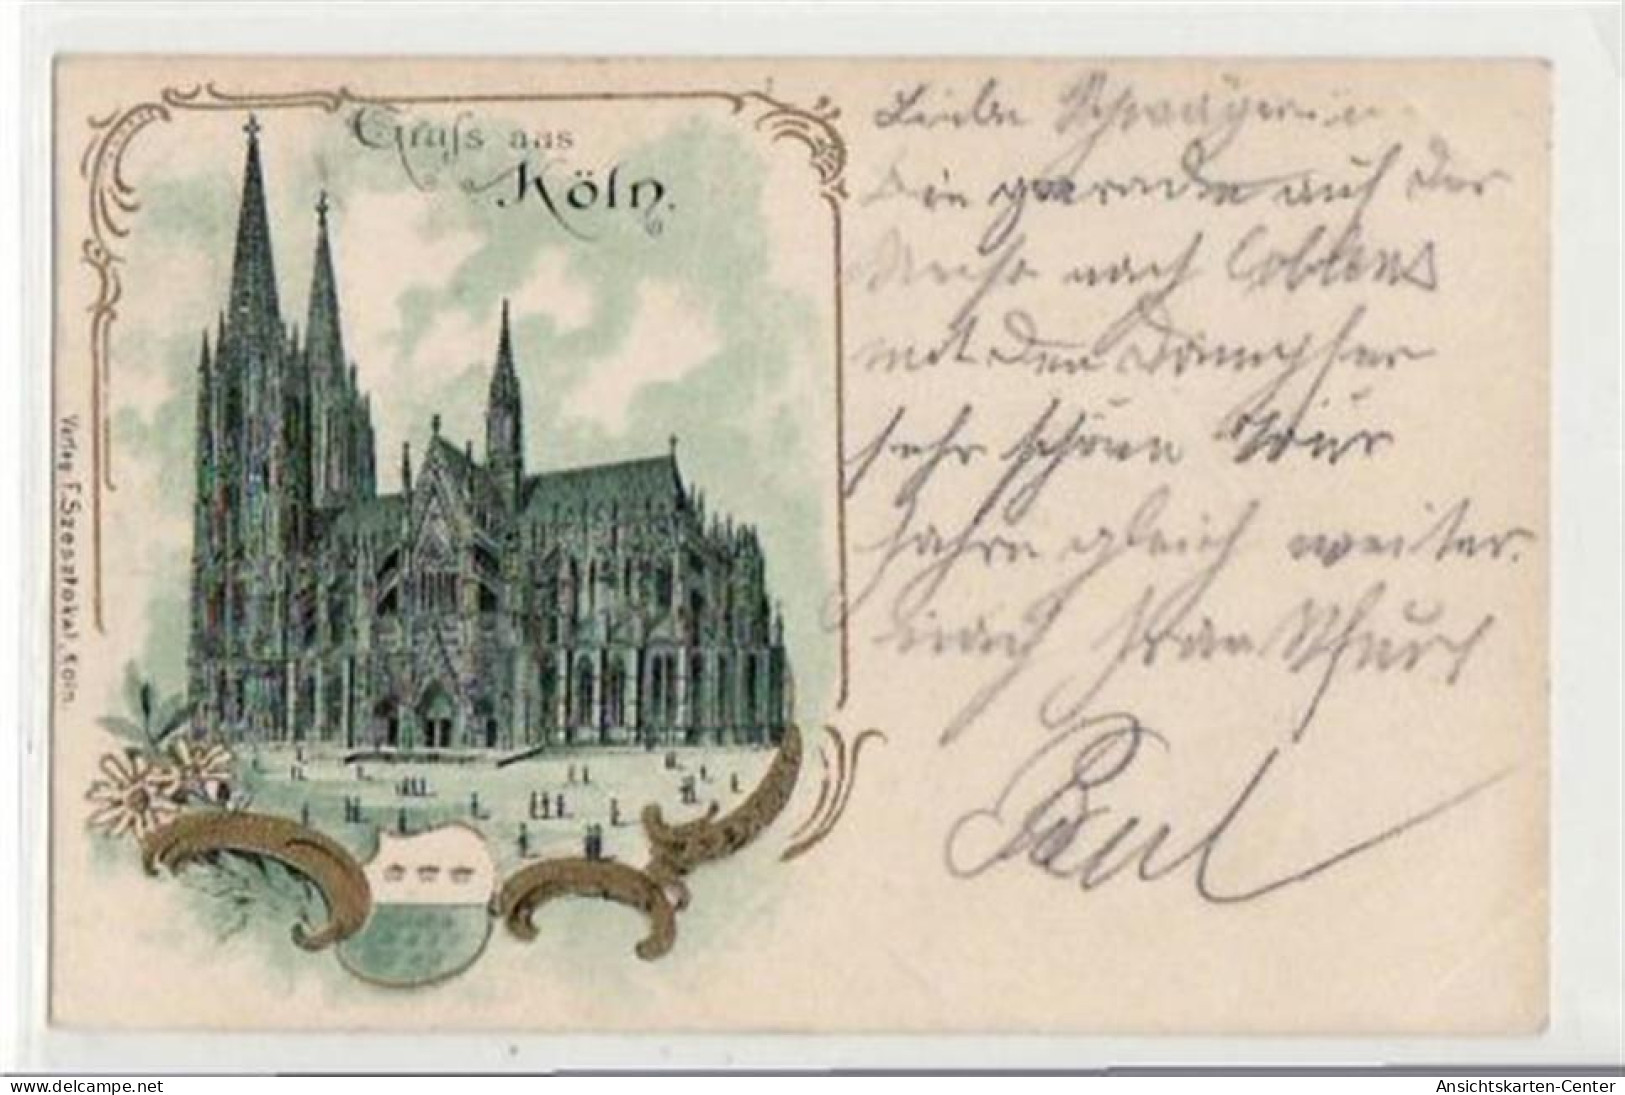 Gruss aus
Köln.
Verlag F. Szesztokat, Köln.
Liebe Schwägerin
Bin gerade auf der
Reise nach Coblenz
mit den Dampfer
sehr schön
fahre gleich weiter.
nach
Paul
delcampe.net
Ansichtskarten-Center